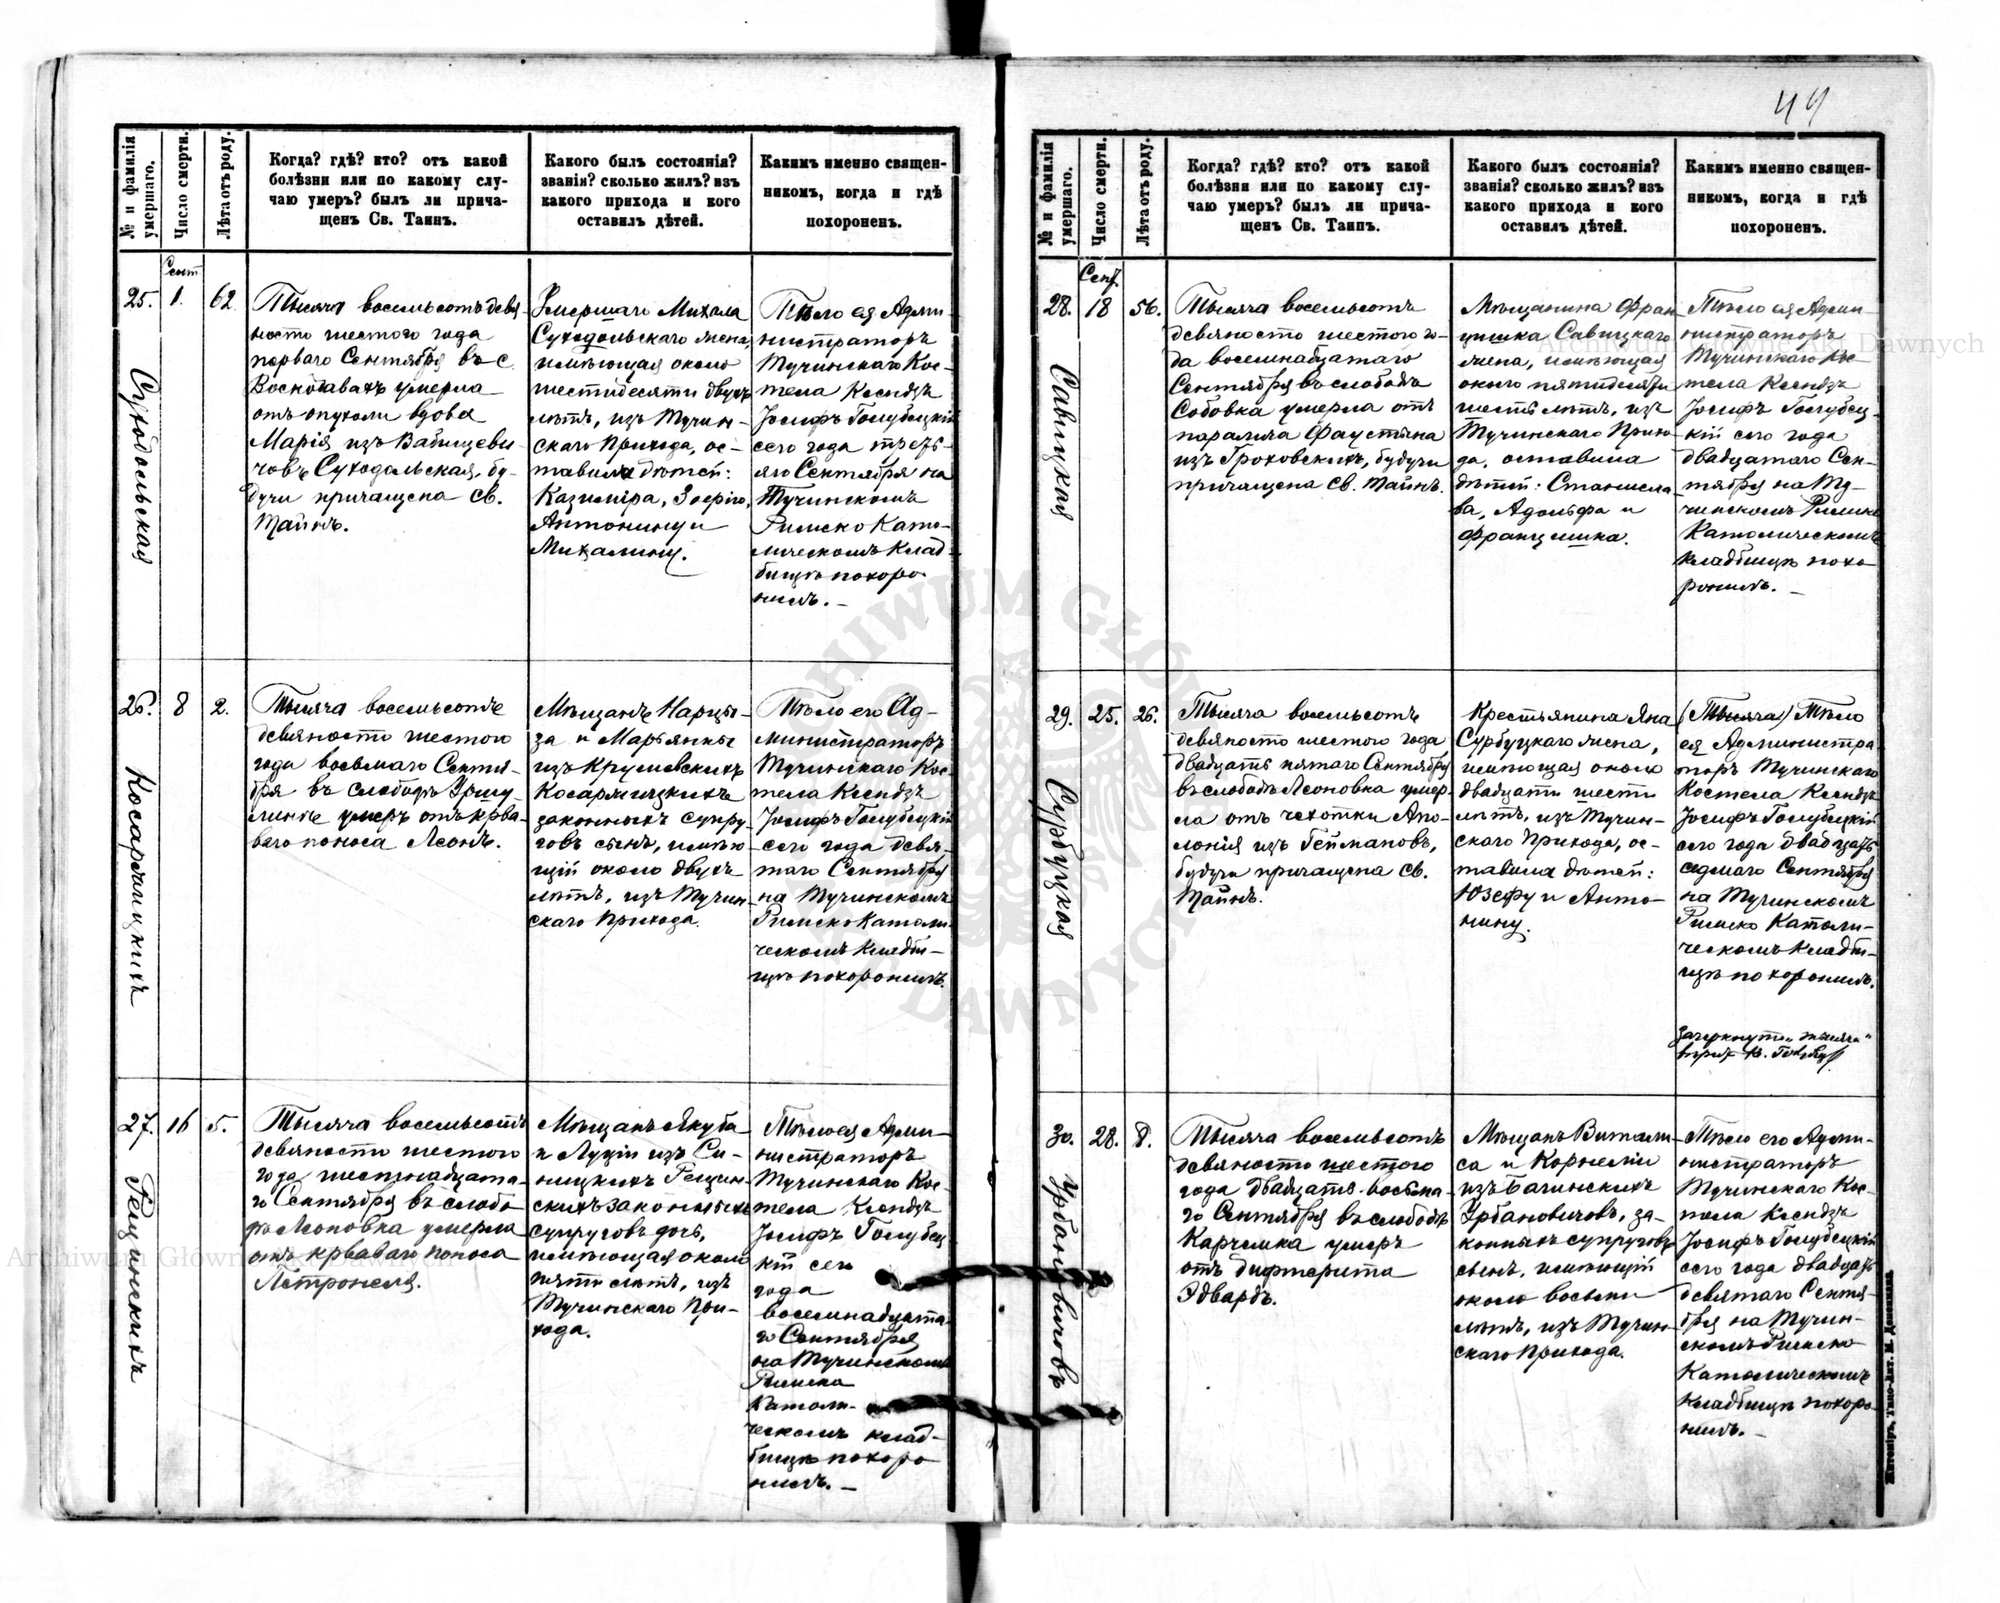 49
№ и фамилія умершаго.
Число смерти.
Лѣта отъ роду.
Когда? гдѣ? кто? отъ какой
болѣзни или по какому слу-
чаю умеръ? былъ ли прича-
щенъ Св. Таинъ.
Какого былъ состоянія?
званія? сколько жилъ? изъ
какого прихода и кого
оставилъ дѣтей.
Какимъ именно священ-
никомъ, когда и гдѣ
похороненъ.
25.
Суходольская
Сент.
1.
62
Тысяча восемьсотъ девя
носто шестого года
перваго Сентября въ с.
умерла
отъ опухоли вдова
Марія изъ Бабищеви-
човъ Суходольская, бу-
дучи причащена св.
Тайнъ.
Умершаго Михала
Суходольскаго жена,
имѣющая около
шестидесяти двухъ
лѣтъ, изъ Тучин-
скаго Прихода, ос-
тавила дѣтей:
Казимира, Зофію,
Антонину и
Михалину.
Тѣло ея Адми-
нистраторъ
Тучинскаго Кос-
тела Ксендзъ
Іосифъ Голубецкій
сего года треть-
яго Сентября на
Тучинскомъ
Римско Като-
лическомъ Клад-
бищѣ похоро
нилъ. –
26.
8
2.
Тысяча восемьсотъ
девяносто шестого
года восьмаго Сентя-
бря въ слободѣ Уршу-
линѣ умеръ отъ крва-
ваго поноса Леонъ.
Мѣщанъ Нарцы-
за и Марьянны
изъ Крушевскихъ
законныхъ супру-
говъ сынъ, имѣю
щій около двухъ
лѣтъ, изъ Тучин-
скаго Прихода.
Тѣло его Ад-
министраторъ
Тучинскаго Кос-
тела Ксендзъ
Іосифъ Голубецкій
сего года девя-
таго Сентября
на Тучинскомъ
Римско Катали-
ческомъ Кладби-
щѣ похоронилъ.
27.
Гещинскихъ
16
5.
Тысяча восемьсотъ
девяносто шестого
года шестнадцата-
го Сентября въ слобо-
дѣ Леоновка умерла
отъ крваваго поноса
Петронеля.
Мѣщанъ Якуба
и Луціи изъ Си-
ницкихъ Гещин-
скихъ законныхъ
супруговъ дочь,
имѣющая около
пяти лѣтъ, изъ
Тучинскаго При-
хода.
Тѣло ея Адми-
нистраторъ
Тучинскаго Кос-
тела Ксендзъ
Іосифъ Голубец
кій сего
года
восемнадцата-
го Сентября
на Тучинскомъ
Римско
Католи-
ческомъ клад-
бищѣ похоро
нилъ. –
№ и фамилія умершаго.
Число смерти.
Лѣта отъ роду.
Когда? гдѣ? кто? отъ какой
болѣзни или по какому слу-
чаю умеръ? былъ ли прича-
щенъ Св. Таинъ.
Какого былъ состоянія?
званія? сколько жилъ? изъ
какого прихода и кого
оставилъ дѣтей.
Какимъ именно священ-
никомъ, когда и гдѣ
похороненъ.
28.
Савицкая
Сент.
18
56.
Тысяча восемьсотъ
девяносто шестого го-
да восемнадцатаго
Сентября въ слободѣ
Собовка умерла отъ
паралича Фаустина
изъ Гроховскихъ, будучи
причащена св. Тайнъ.
Мѣщанина Фран
цишка Савицкаго
жена, имѣющая
около пятидесяти
шесть лѣтъ, изъ
Тучинскаго Прихо-
да, оставила
дѣтей: Станисла
ва, Адольфа и
Францишка.
Тѣло ея Адми
нистраторъ
Тучинскаго Кос-
тела Ксендзъ
Іосифъ Голубец-
кій сего года
двадцатаго Сен-
тября на Ту-
чинскомъ Римско
Католическомъ
Кладбищѣ похо-
ронилъ. –
29.
Сурбуцкая
25.
26.
Тысяча восемьсотъ
девяносто шестого года
двадцать пятаго Сентября
въ слободѣ Леоновка умер-
ла отъ чехотки Апо-
лонія изъ Геймановъ,
будучи причащена св.
Тайнъ.
Крестьянина Яна
Сурбуцкаго жена,
имѣющая около
двадцати шести
лѣтъ, изъ Тучин-
скаго Прихода, ос-
тавила дѣтей:
Юзефу и Анто-
нину.
(Тысяча) Тѣло
ея Администра-
торъ Тучинскаго
Костела Ксендзъ
Іосифъ Голубецкій
сего года двадцать
седмаго Сентября
на Тучинскомъ
Римско Католи-
ческомъ Кладби-
щѣ похоронилъ.
Зачеркнуто „тысяча“
30.
Урбановичовъ
28.
8.
Тысяча восемьсотъ
девяносто шестого
года двадцать восьма-
го Сентября въ слободѣ
Карчемка умеръ
отъ дифтерита
Эдвардъ.
Мѣщанъ Витали
са и Корнеліи
изъ Багинскихъ
Урбановичовъ, за-
конныхъ супруговъ
сынъ, имѣющій
около восьми
лѣтъ, изъ Тучин-
скаго Прихода.
Тѣло его Адми-
нистраторъ
Тучинскаго Кос-
тела Ксендзъ
Іосифъ Голубецкій
сего года двадцать
девятаго Сентя-
бря на Тучин-
скомъ Римско
Католическомъ
Кладбищѣ похоро
нилъ. –
Житоміръ, Типо-Лит. М. Дененмана.
Archiwum Główne Akt Dawnych
Archiwum Główne Akt Dawnych
ARCHIWUM GŁÓWNE AKT DAWNYCH